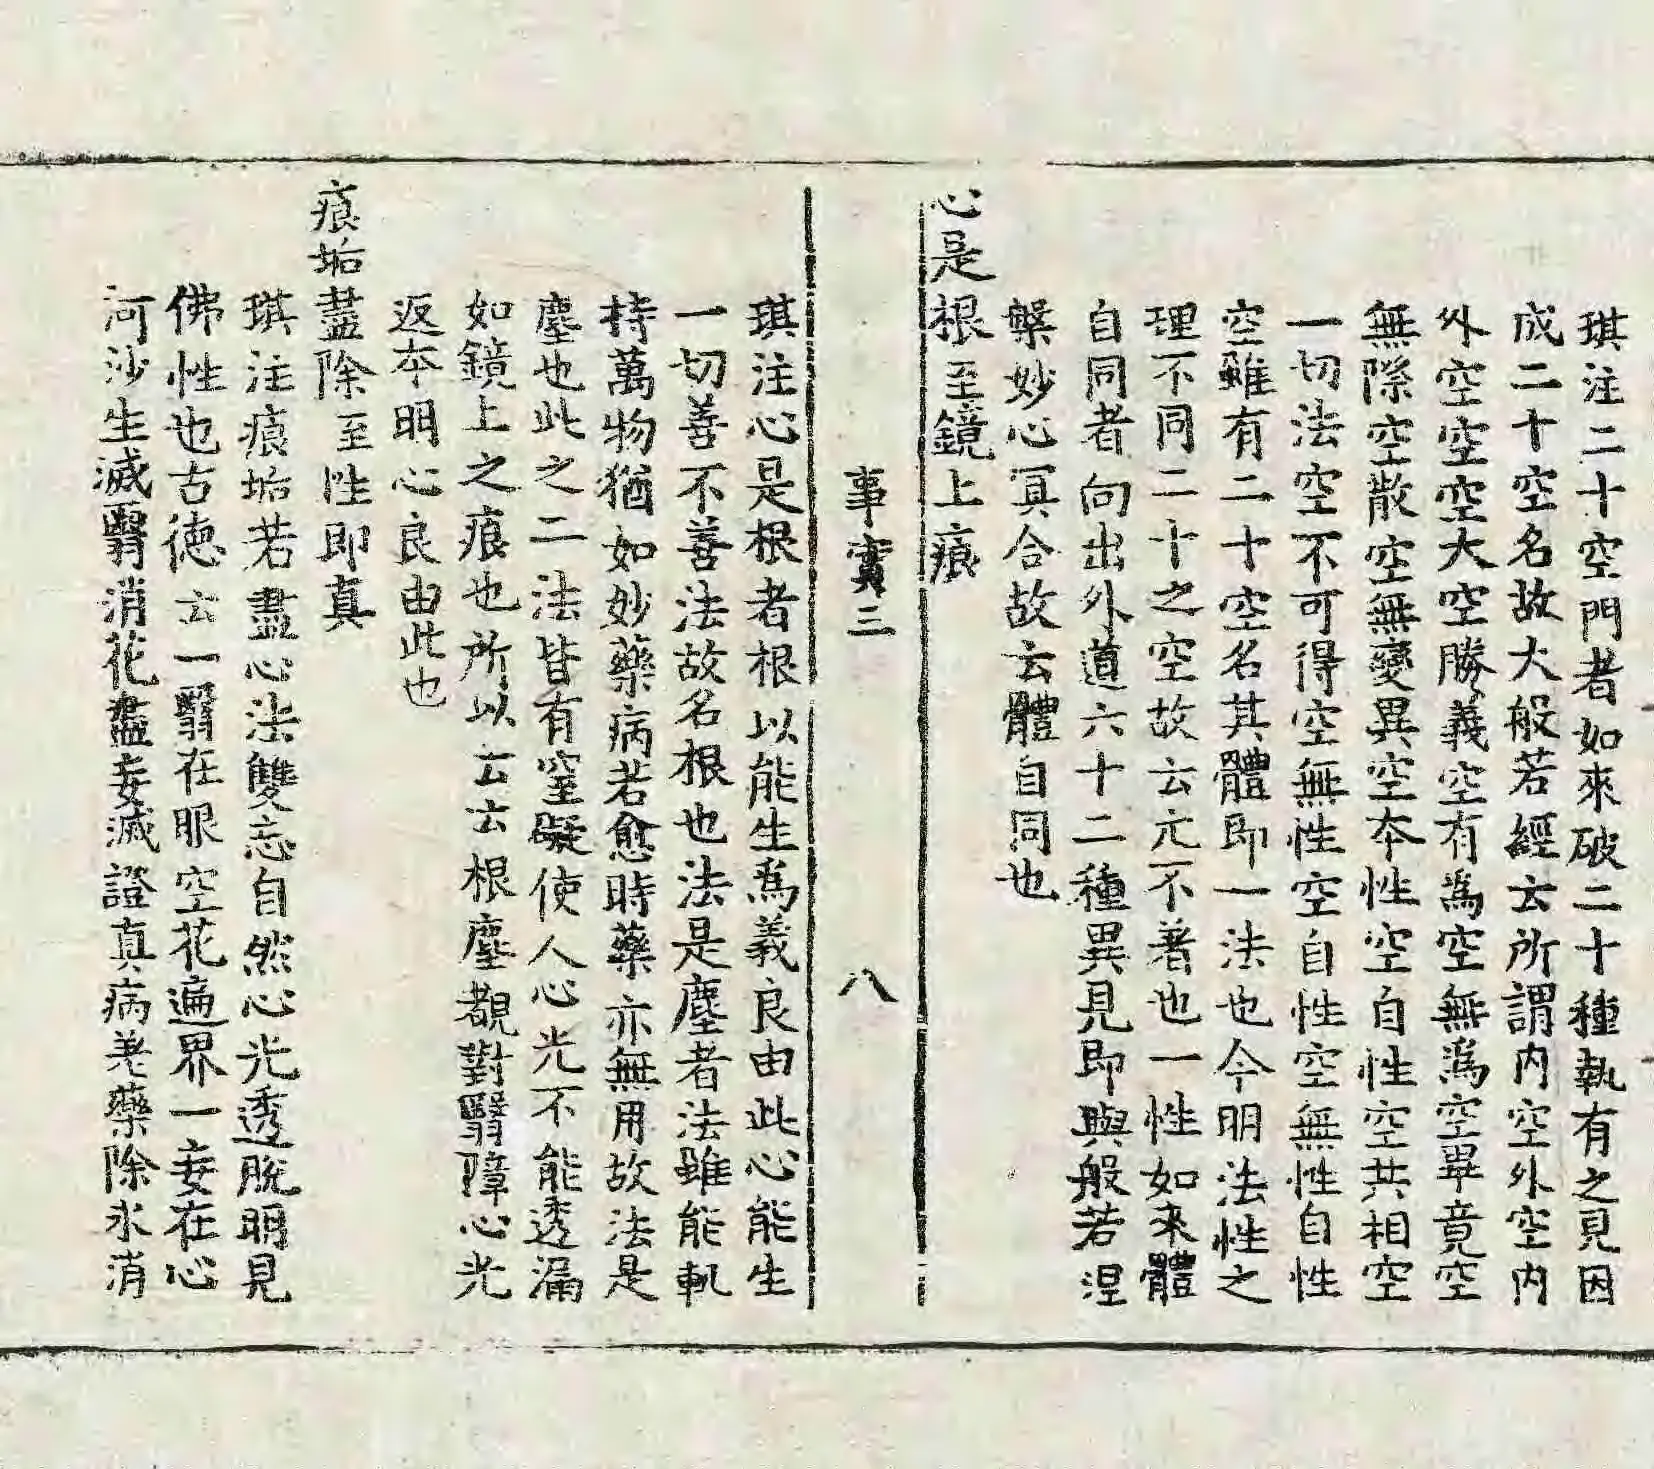 琪注二十空門者如來破二十種執有之見因
成二十空名故大般若經云所謂内空外空内
外空空空大空勝義空有為空無為空畢竟空
無際空散空無變異空本性空自性空共相空
一切法空不可得空無性空自性空無性自性
空雖有二十空名其體即一法也今明法性之
理不同二十之空故云元不著也一性如來體
自同者向出外道六十二種異見即與般若涅
槃妙心冥合故云體自同也
心是根至鏡上痕
事實三 八
琪注心是根者根以能生為義良由此心能生
一切善不善法故名根也法是塵者法雖能軌
持萬物猶如妙藥病若愈時藥亦無用故法是
塵也此之二法皆有窒礙使人心光不能透漏
如鏡上之痕也所以云去根塵覩對翳障心光
返本明心良由此也
痕垢盡除至性即真
琪注痕垢若盡心法雙忘自然心光透脫明見
佛性也古德云一翳在眼空花遍界一妄在心
河沙生滅翳消花盡妄滅證真病差藥除氷消